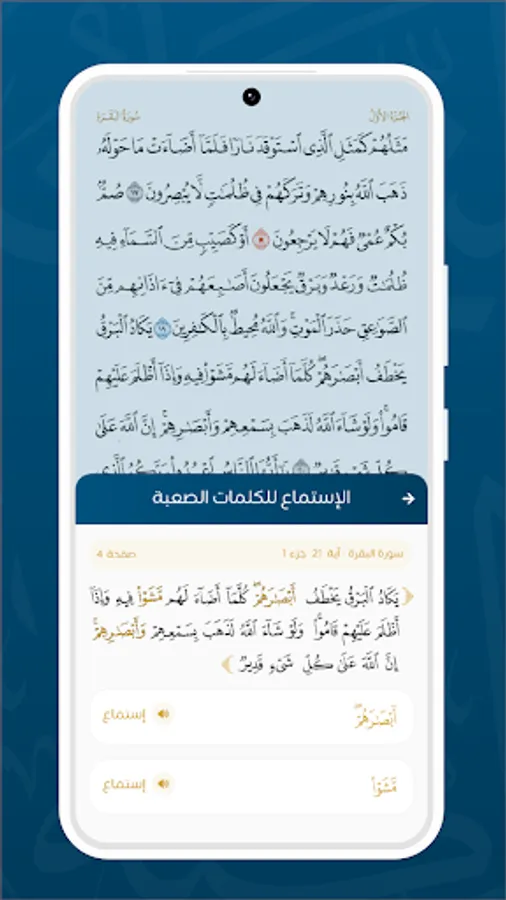 سورة البقرة الجزء الأول
مَثَلُهُمْ كَمَثَلِ ٱلَّذِى ٱسْتَوْقَدَ نَارًا فَلَمَّآ أَضَآءَتْ مَا حَوْلَهُۥ
ذَهَبَ ٱللَّهُ بِنُورِهِمْ وَتَرَكَهُمْ فِى ظُلُمَٰتٍ لَّا يُبْصِرُونَ ١٧ صُمٌّۢ
بُكْمٌ عُمْىٌ فَهُمْ لَا يَرْجِعُونَ أَوْ كَصَيِّبٍ مِّنَ ٱلسَّمَآءِ فِيهِ
ظُلُمَٰتٌ وَرَعْدٌ وَبَرْقٌ يَجْعَلُونَ أَصَٰبِعَهُمْ فِىٓ ءَاذَانِهِم مِّنَ
ٱلصَّوَٰعِقِ حَذَرَ ٱلْمَوْتِ ۚ وَٱللَّهُ مُحِيطٌۢ بِٱلْكَٰفِرِينَ ١٩ يَكَادُ ٱلْبَرْقُ
يَخْطَفُ أَبْصَٰرَهُمْ ۖ كُلَّمَآ أَضَآءَ لَهُم مَّشَوْا۟ فِيهِ وَإِذَآ أَظْلَمَ عَلَيْهِمْ
قَامُوا۟ ۚ وَلَوْ شَآءَ ٱللَّهُ لَذَهَبَ بِسَمْعِهِمْ وَأَبْصَٰرِهِمْ ۚ إِنَّ ٱللَّهَ عَلَىٰ
الإستماع للكلمات الصعبة
سورة البقرة آية 21 جزء 1 صفحة 4
يَكَادُ ٱلْبَرْقُ يَخْطَفُ أَبْصَٰرَهُمْ ۖ كُلَّمَآ أَضَآءَ لَهُم مَّشَوْا۟ فِيهِ وَإِذَآ
أَظْلَمَ عَلَيْهِمْ قَامُوا۟ ۚ وَلَوْ شَآءَ ٱللَّهُ لَذَهَبَ بِسَمْعِهِمْ وَأَبْصَٰرِهِمْ ۚ
إِنَّ ٱللَّهَ عَلَىٰ كُلِّ شَىْءٍ قَدِيرٌ
أَبْصَٰرَهُمْ ۖ إستماع
مَّشَوْا۟ إستماع